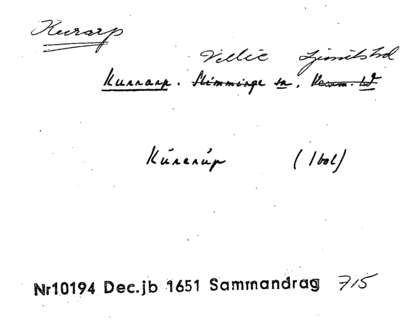 Kurarp
Vellie Ljunitsbd
Kunnarp. Stimminge sn, Vemm. hd
Kúnerúp (1 bol)
Nr10194 Dec.jb 1651 Sammandrag 715